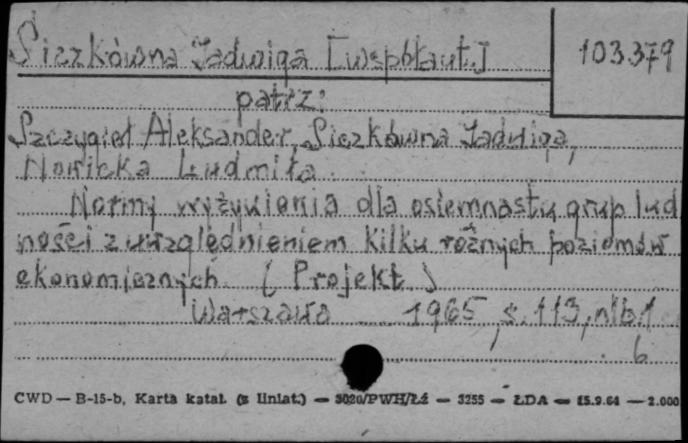 Siczkówna Jadwiga [współaut.]
103379
patrz:
Szczygieł Aleksander, Siczkówna Jadwiga,
Nowicka Ludmiła
Normy wyżywienia dla osiemnastu grup lud
ności z uwzględnieniem kilku różnych poziomów
ekonomicznych. (Projekt)
Warszawa 1965, s. 113, nlb. 1
6
CWD — B-15-b, Karta katal. (z liniat.) — 3020/PWH/Łź — 3255 — ŁDA — 15.9.64 — 2.000